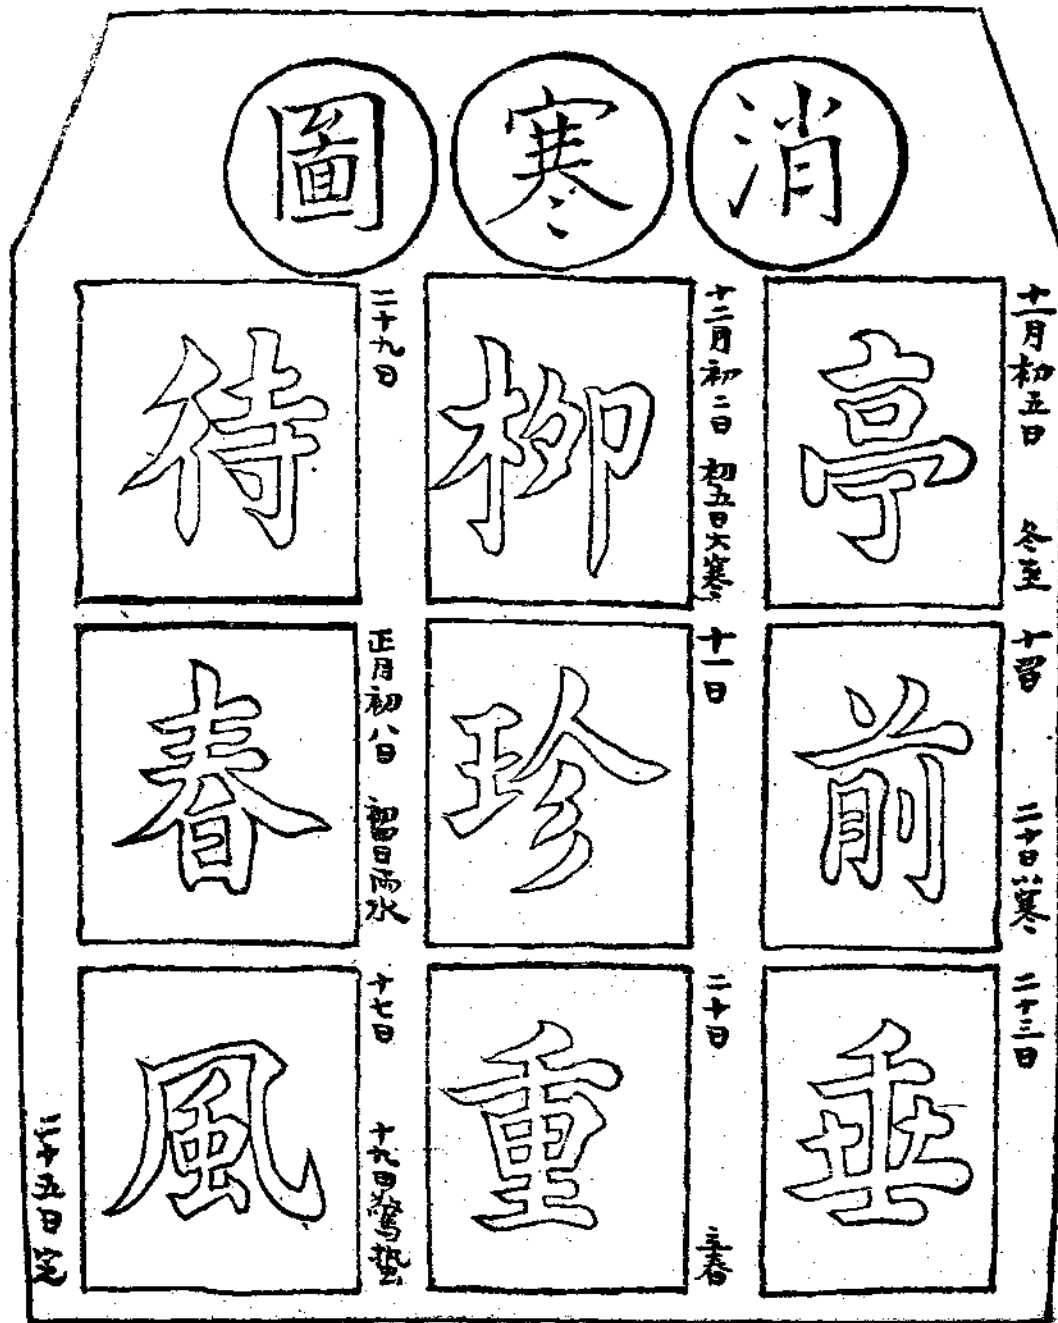 消寒圖
十一月初五日 冬至
亭
十四日 二十日小寒
前
二十三日
垂
十二月初二日 初五日大寒
柳
十一日
珍
二十日 立春
重
二十九日
待
正月初八日 初四日雨水
春
十七日 十九日驚蟄
風
二十五日完